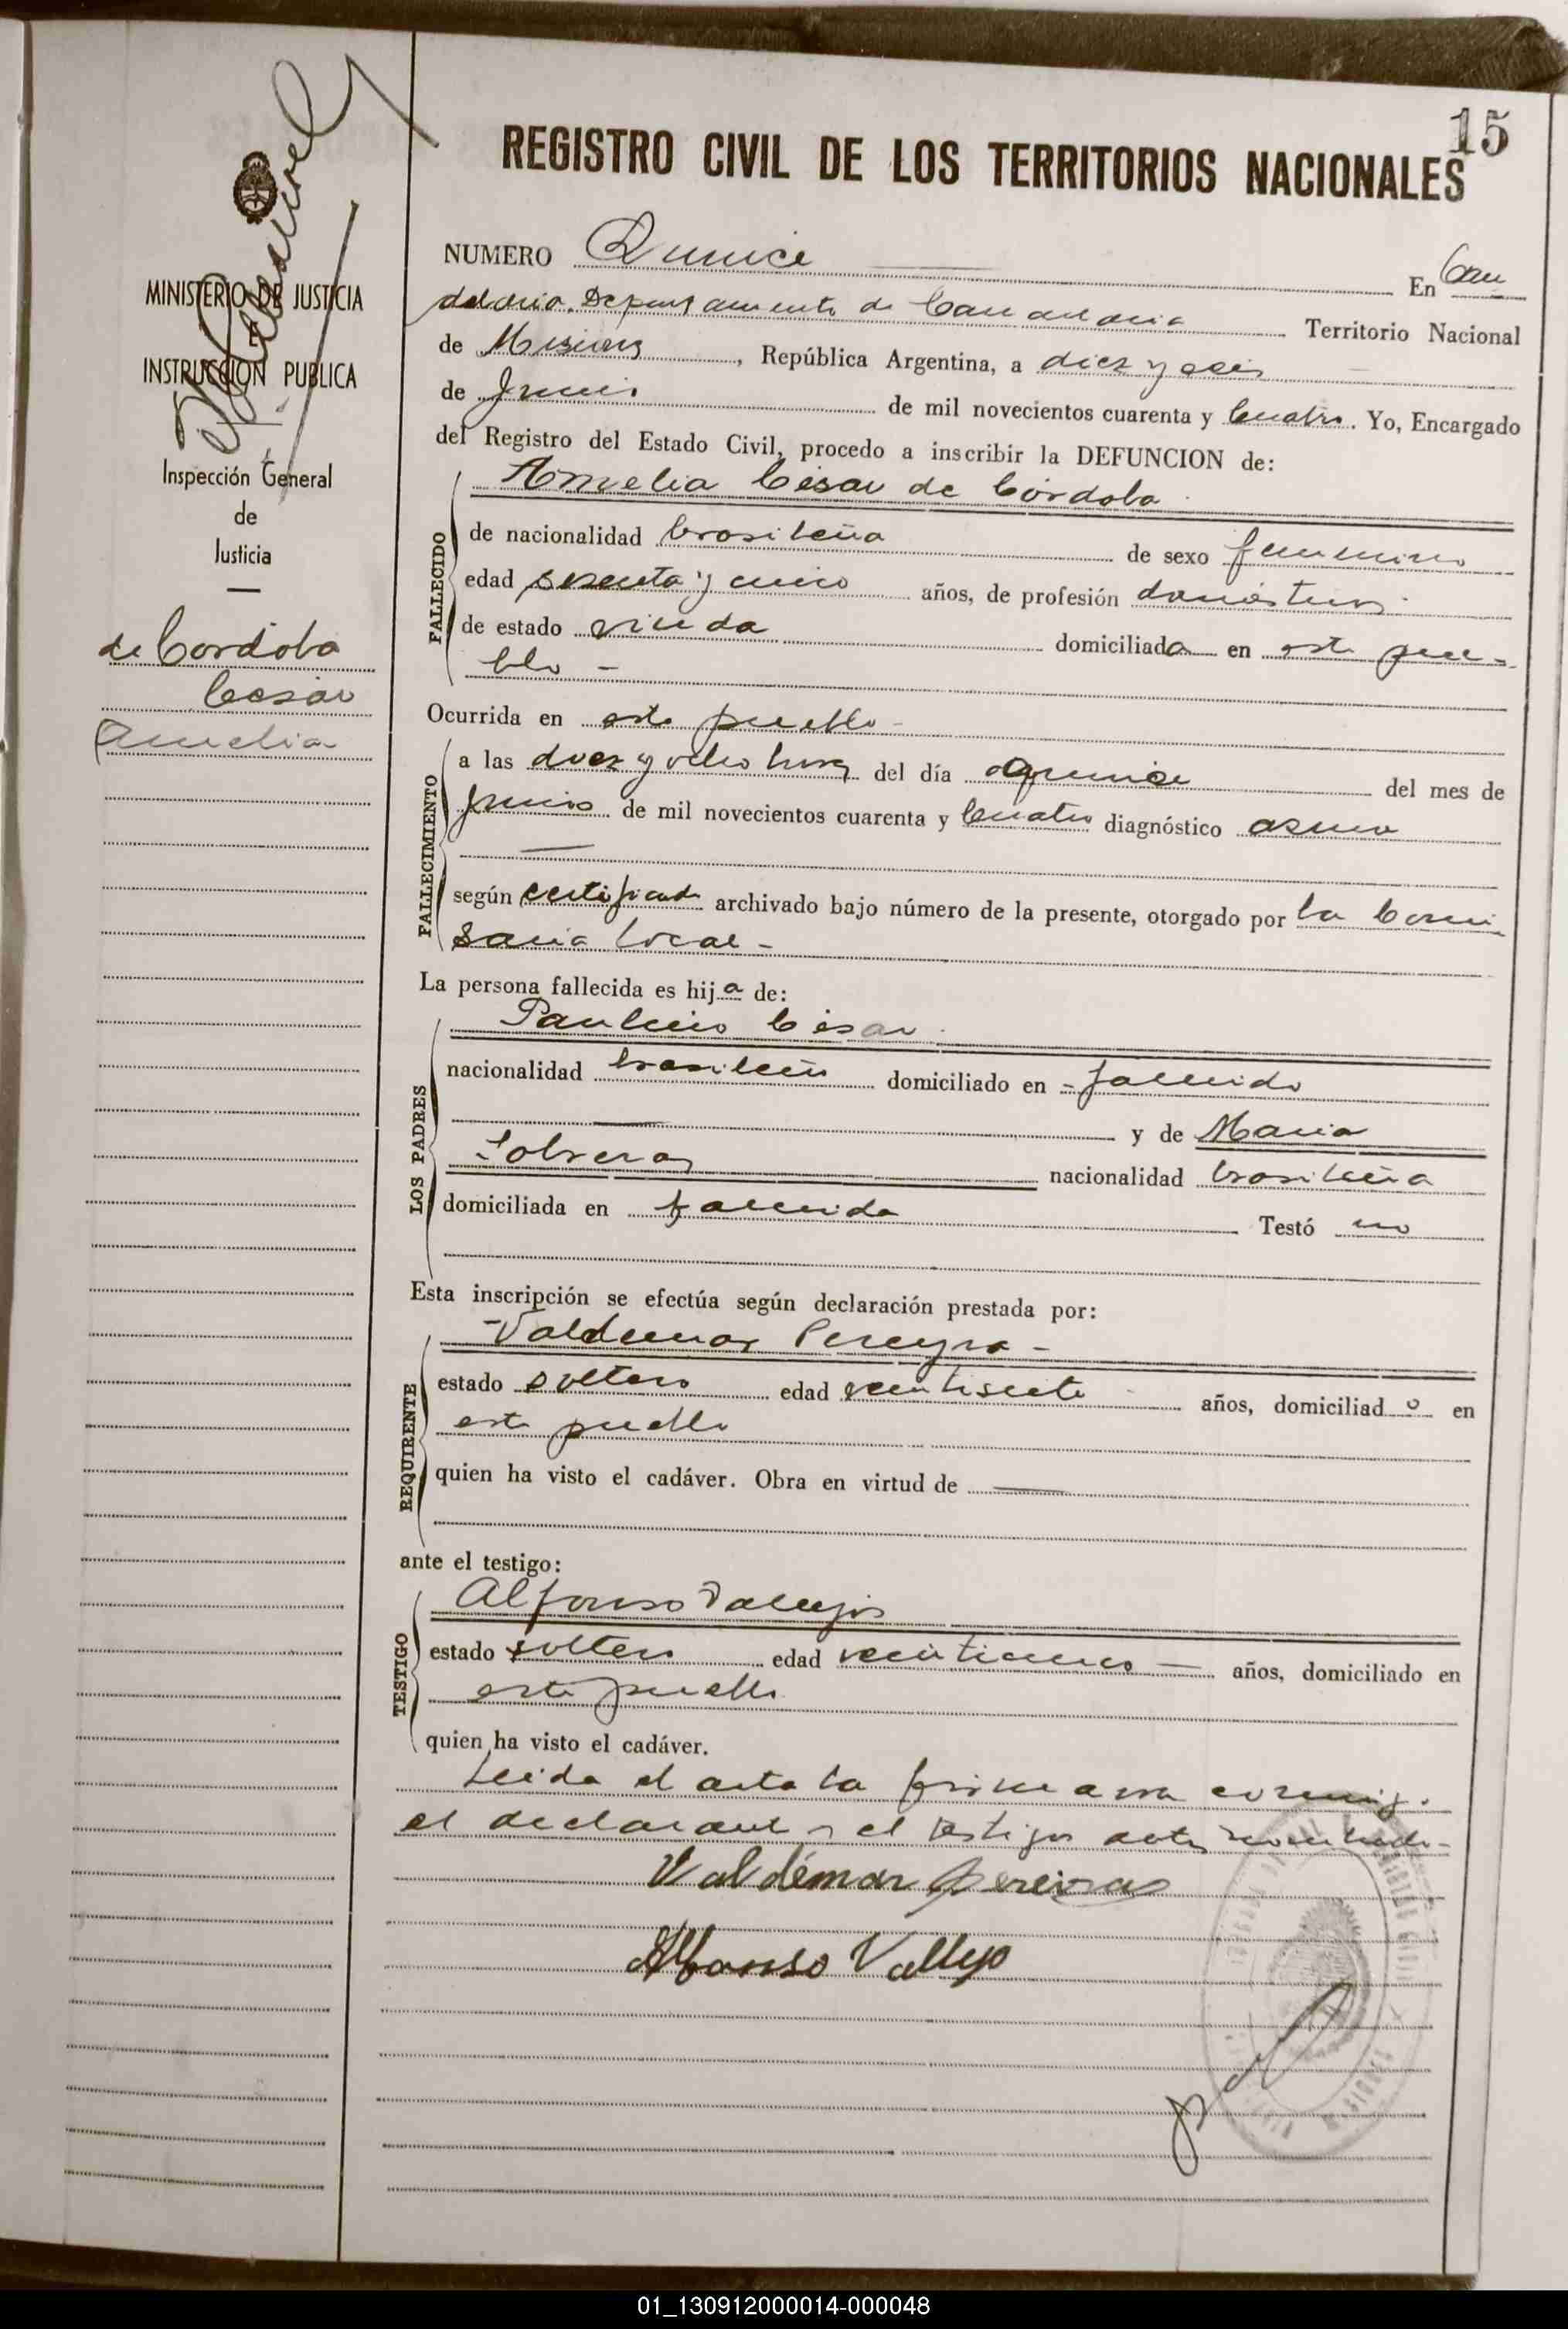 15
REGISTRO CIVIL DE LOS TERRITORIOS NACIONALES
MINISTERIO DE JUSTICIA
E
INSTRUCCION PUBLICA
Inspección General
de
Justicia
de Cordoba
Cesar
Amelia
NUMERO Quince En Can
delaria. Departamento de Candelaria Territorio Nacional
de Misiones, República Argentina, a diez y seis
de Junio de mil novecientos cuarenta y Cuatro. Yo, Encargado
del Registro del Estado Civil, procedo a inscribir la DEFUNCION de:
Amelia César de Córdoba
FALLECIDO
de nacionalidad brasileña de sexo femenino
edad sesenta y cinco años, de profesión
de estado viuda domiciliada en este pue-
blo -
Ocurrida en este pueblo -
FALLECIMIENTO
a las diez y ocho horas del día quince del mes de
Junio de mil novecientos cuarenta y Cuatro diagnóstico asma
según certificado archivado bajo número de la presente, otorgado por la Comi
saria local -
La persona fallecida es hija de:
LOS PADRES
Paulino César
nacionalidad brasileño domiciliado en - fallecido
y de Maria
nacionalidad brasileña
domiciliada en fallecida Testó no
Esta inscripción se efectúa según declaración prestada por:
REQUIRENTE
Valdemar Pereyra -
estado soltero edad veintisiete años, domiciliado en
este pueblo
quien ha visto el cadáver. Obra en virtud de
ante el testigo:
TESTIGO
Alfonso Vallejos
estado soltero edad años, domiciliado en
este pueblo
quien ha visto el cadáver.
Leida el acta la firman conmigo.
el declarante y el testigo antes nombrado -
Valdémar Pereira
Alfonso Vallejo
01_130912000014-000048